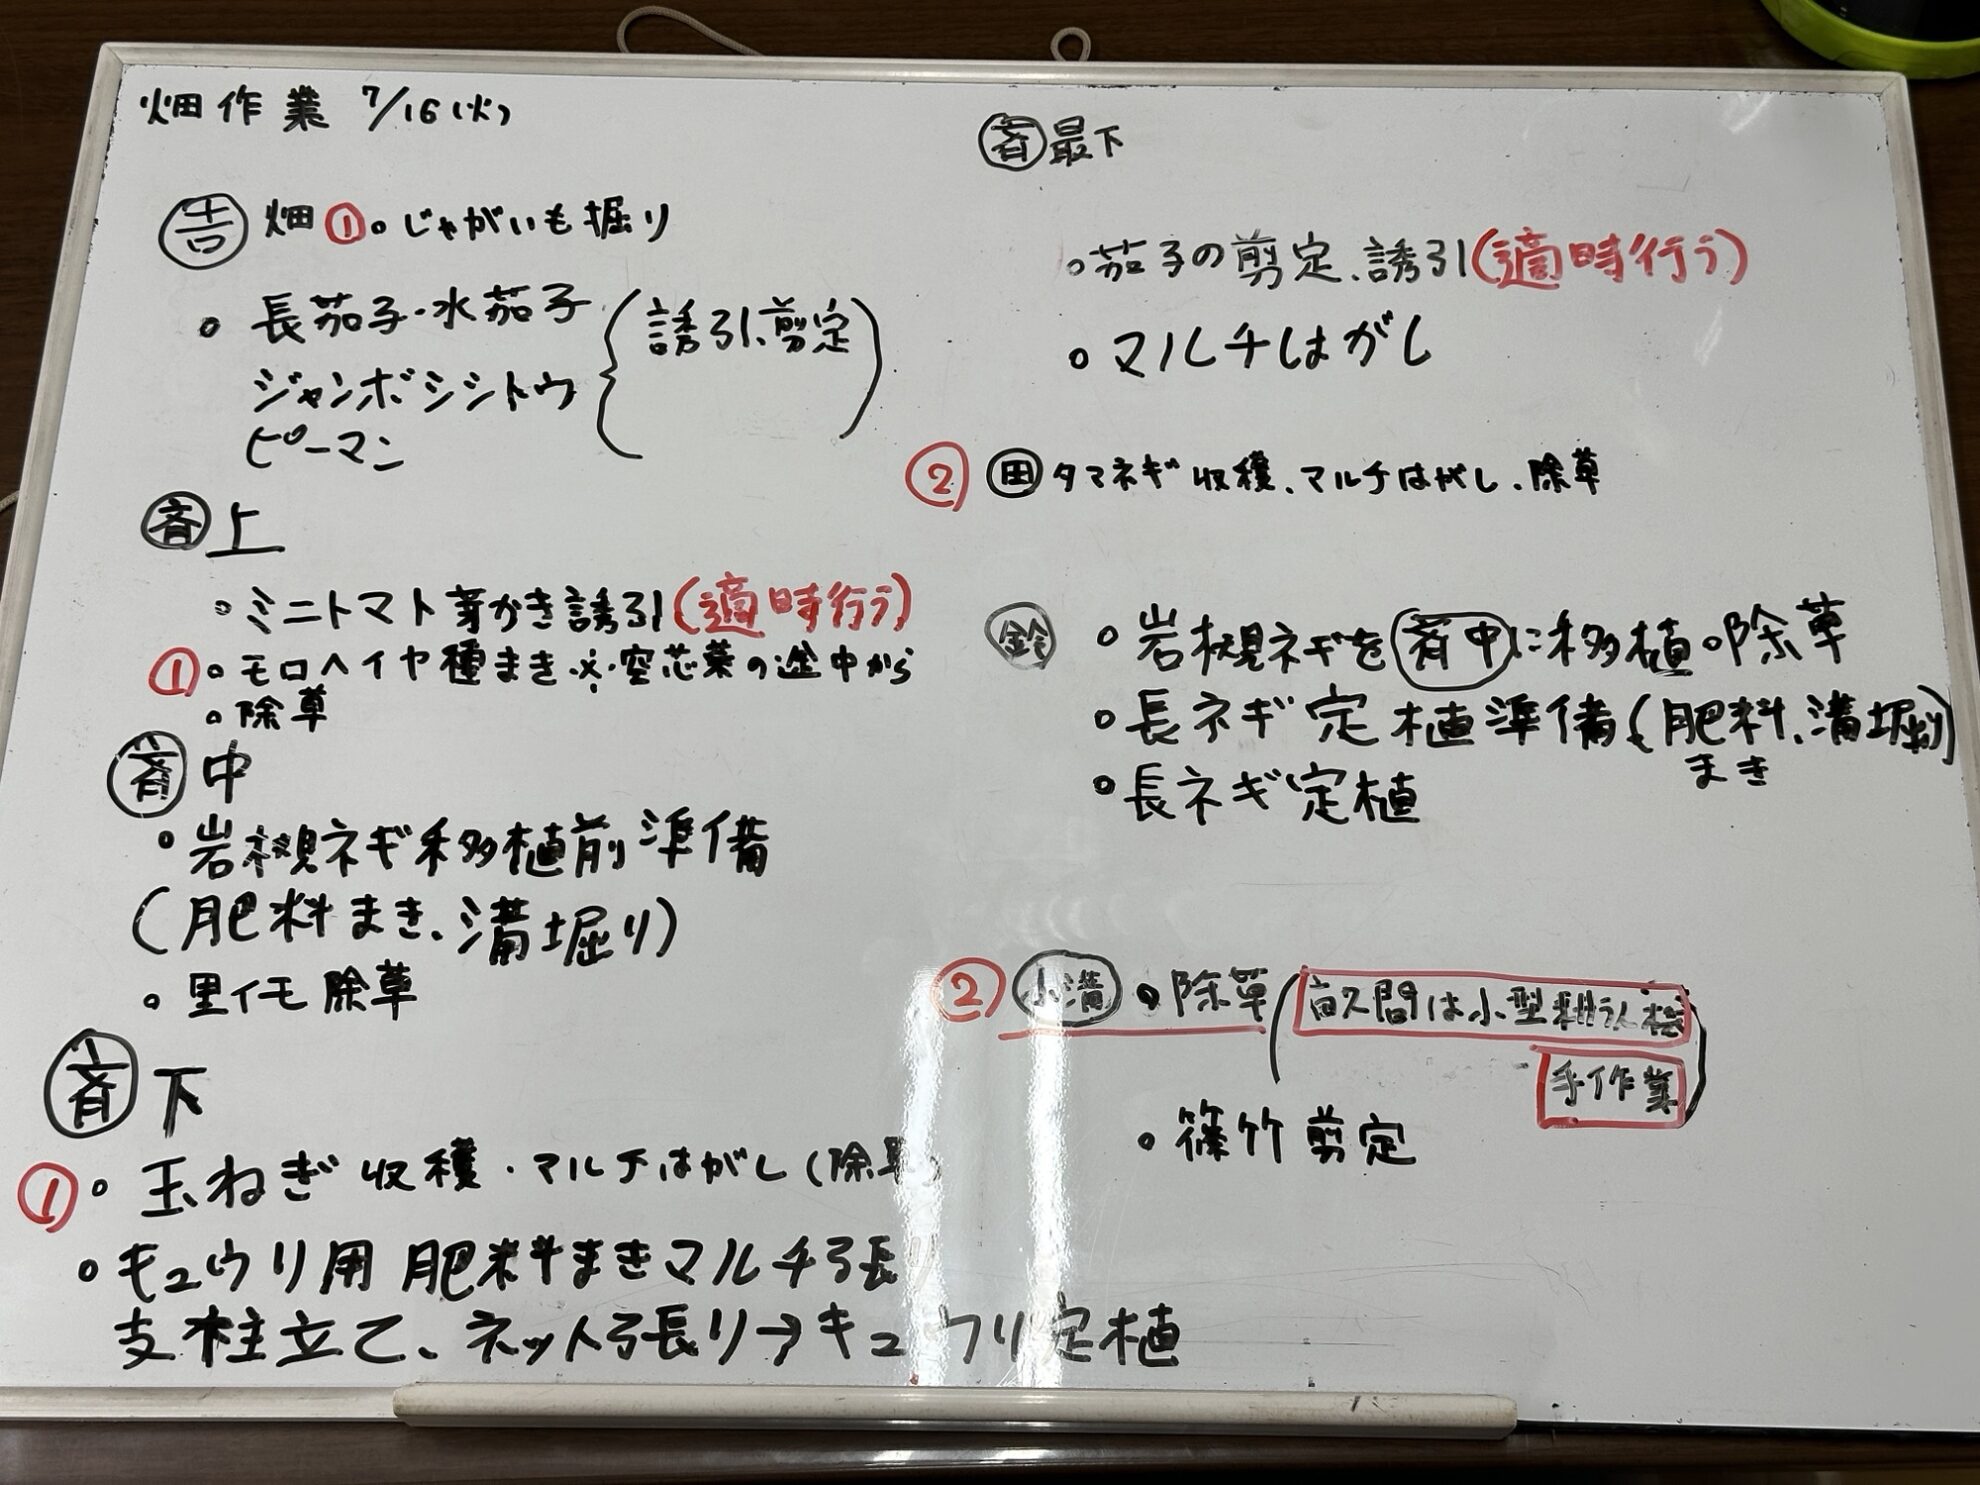 畑作業 7/16(火)
吉 畑 ① ○じゃがいも掘り
○ 長茄子・水茄子 (誘引、剪定)
ジャンボシシトウ
ピーマン
斉上
○ミニトマト芽かき誘引(適時行う)
① ○モロヘイヤ種まき ※空芯菜の途中から
○除草
斉中
○岩槻ネギ移植前準備
(肥料まき、溝堀り)
○里イモ除草
斉下
① ○玉ねぎ収穫・マルチはがし(除草)
○キュウリ用肥料まきマルチ張り
支柱立て、ネット張り→キュウリ定植
斉最下
○茄子の剪定、誘引(適時行う)
○マルチはがし
② 田 タマネギ収穫、マルチはがし、除草
鈴 ○岩槻ネギを斉中に移植○除草
○長ネギ定植準備(肥料まき、溝堀り)
○長ネギ定植
② 小溝 ○除草(畝間は小型耕うん機
手作業)
○篠竹剪定